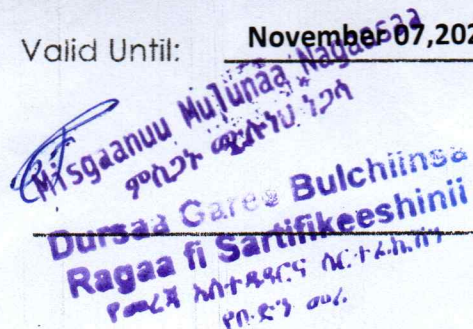 Valid Until: November 07,202
Misgaanuu Mulunaa Nagaasaa
ምስጋኑ ሙሉነህ ነጋሳ
Dursaa Garee Bulchiinsa
Ragaa fi Sartifikeeshinii
የመረጃ አስተዳደርና ሰርተፊኬሽን
የቡድን መሪ